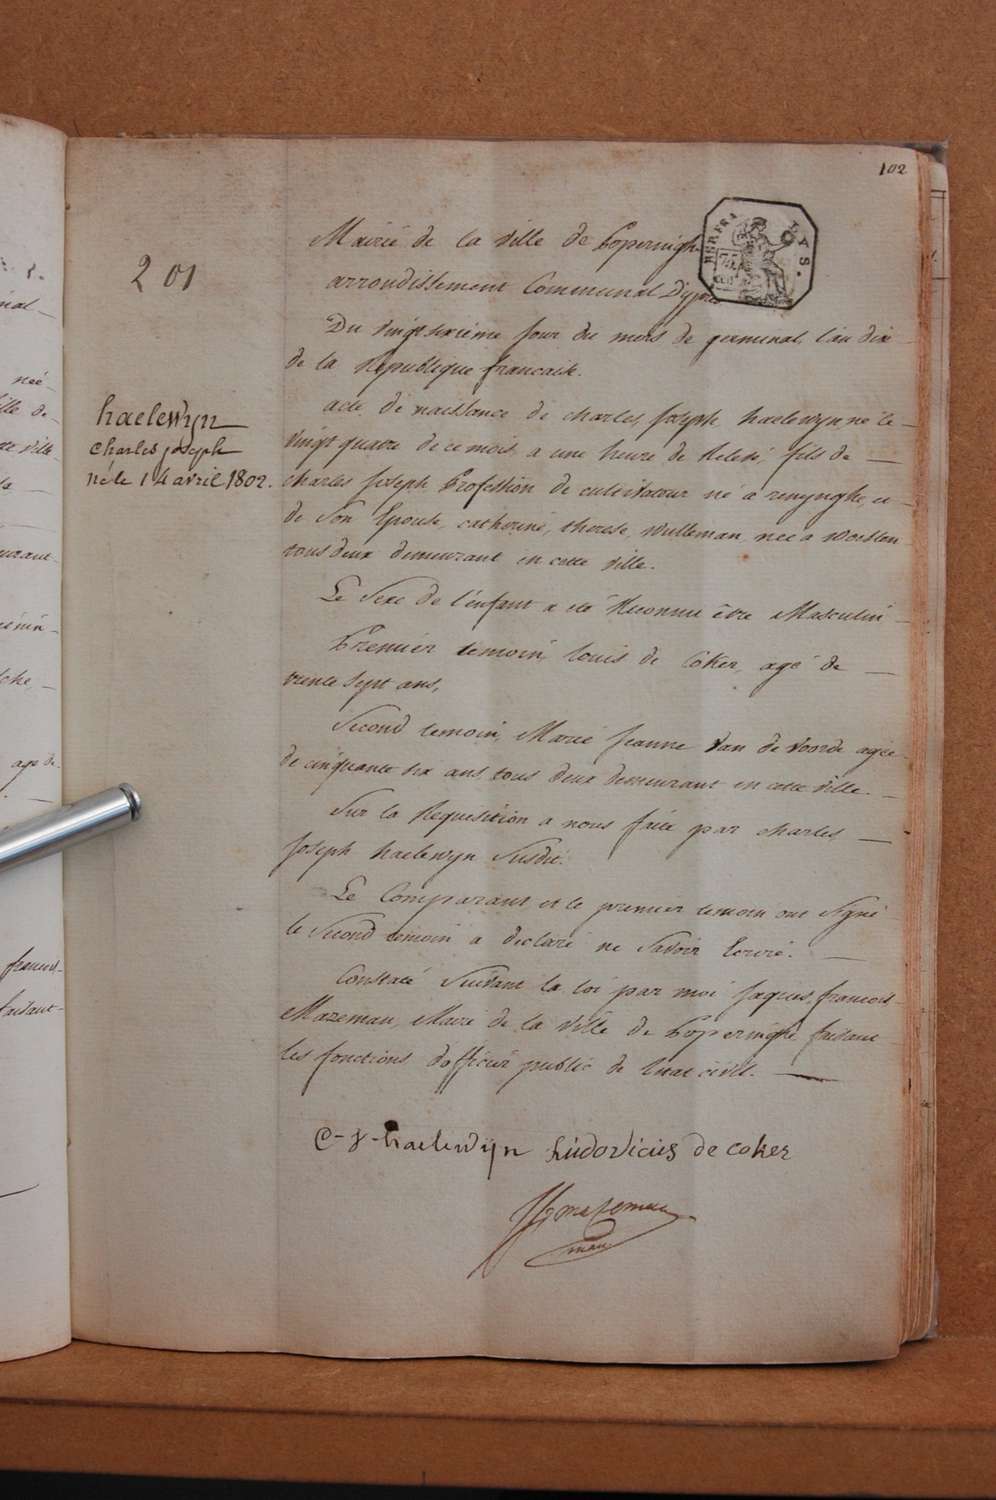 102
REP. FRA.
LYS.
201
haelewyn
charles joseph
né le 14 avril 1802.
Mairie de la Ville de Poperinghe
arrondissement Communal D'ypres
Du Vingt sixieme jour du mois de germinal l'an dix
de la Republique francaise.
acte de naissance de charles, Joseph haelewyn né le
Vingt quatre de ce mois a une heure de Relevé, fils de
charles Joseph Profession de cultivateur né à renynghe, et
de Son Epouse, catherine, therese, wulleman née a woesten
tous deux demeurant en cette ville.
Le Sexe de l'enfant a été Reconnu être Masculin
Premier temoin, louis de Coker, agé de
trente sept ans,
Second temoin, Marie Jeanne Van de Voorde agée
de cinquante six ans, tous deux demeurant en cette Ville.
Sur la Requisition a nous faite par charles
Joseph haelewyn Susdit.
Le Comparant et le premier temoin ont Signé
le Second temoin a declaré ne Savoir Ecrire.
Constaté Suivant la loi par moi Jaques, francois
Mazeman, Maire de la Ville de Poperinghe faisant
les fonctions d'officier public de l'etat civil.
C-J-haelewijn Ludovicus de coker
JF mazeman